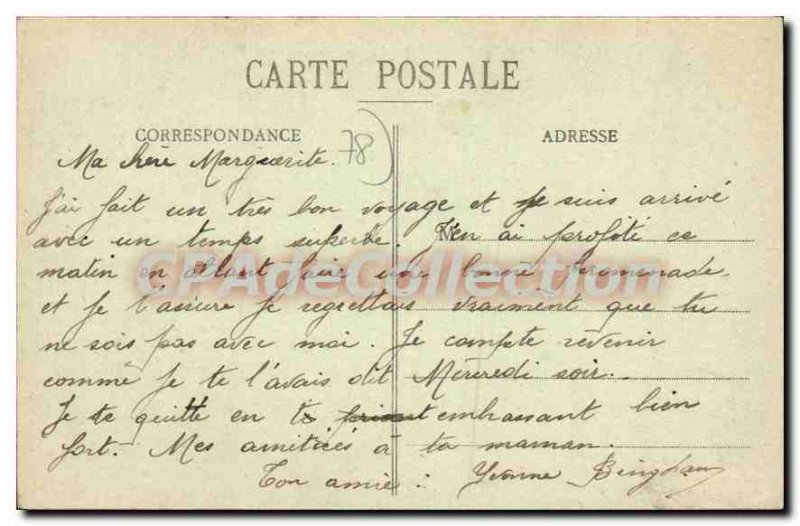 CARTE POSTALE
CORRESPONDANCE
ADRESSE
78
Ma chère Marguerite.
J'ai fait un très bon voyage et je suis arrivé
avec un temps superbe. J'en ai profité ce
matin en allant faire une bonne promenade.
et je t'assure je regrettais vraiment que tu
ne sois pas avec moi. Je compte revenir
comme je te l'avais dit Mercredi soir.
Je te quitte en t' embrassant bien
fort. Mes amitiées à ta maman.
Ton amie : Yvonne
CPAdeCollection.com